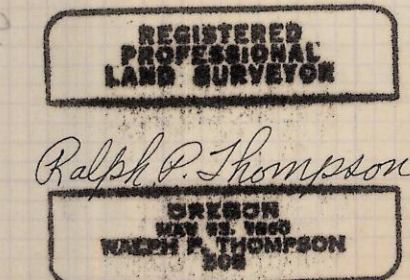 REGISTERED
PROFESSIONAL
LAND SURVEYOR
Ralph P. Thompson
OREGON
MAY
RALPH P. THOMPSON